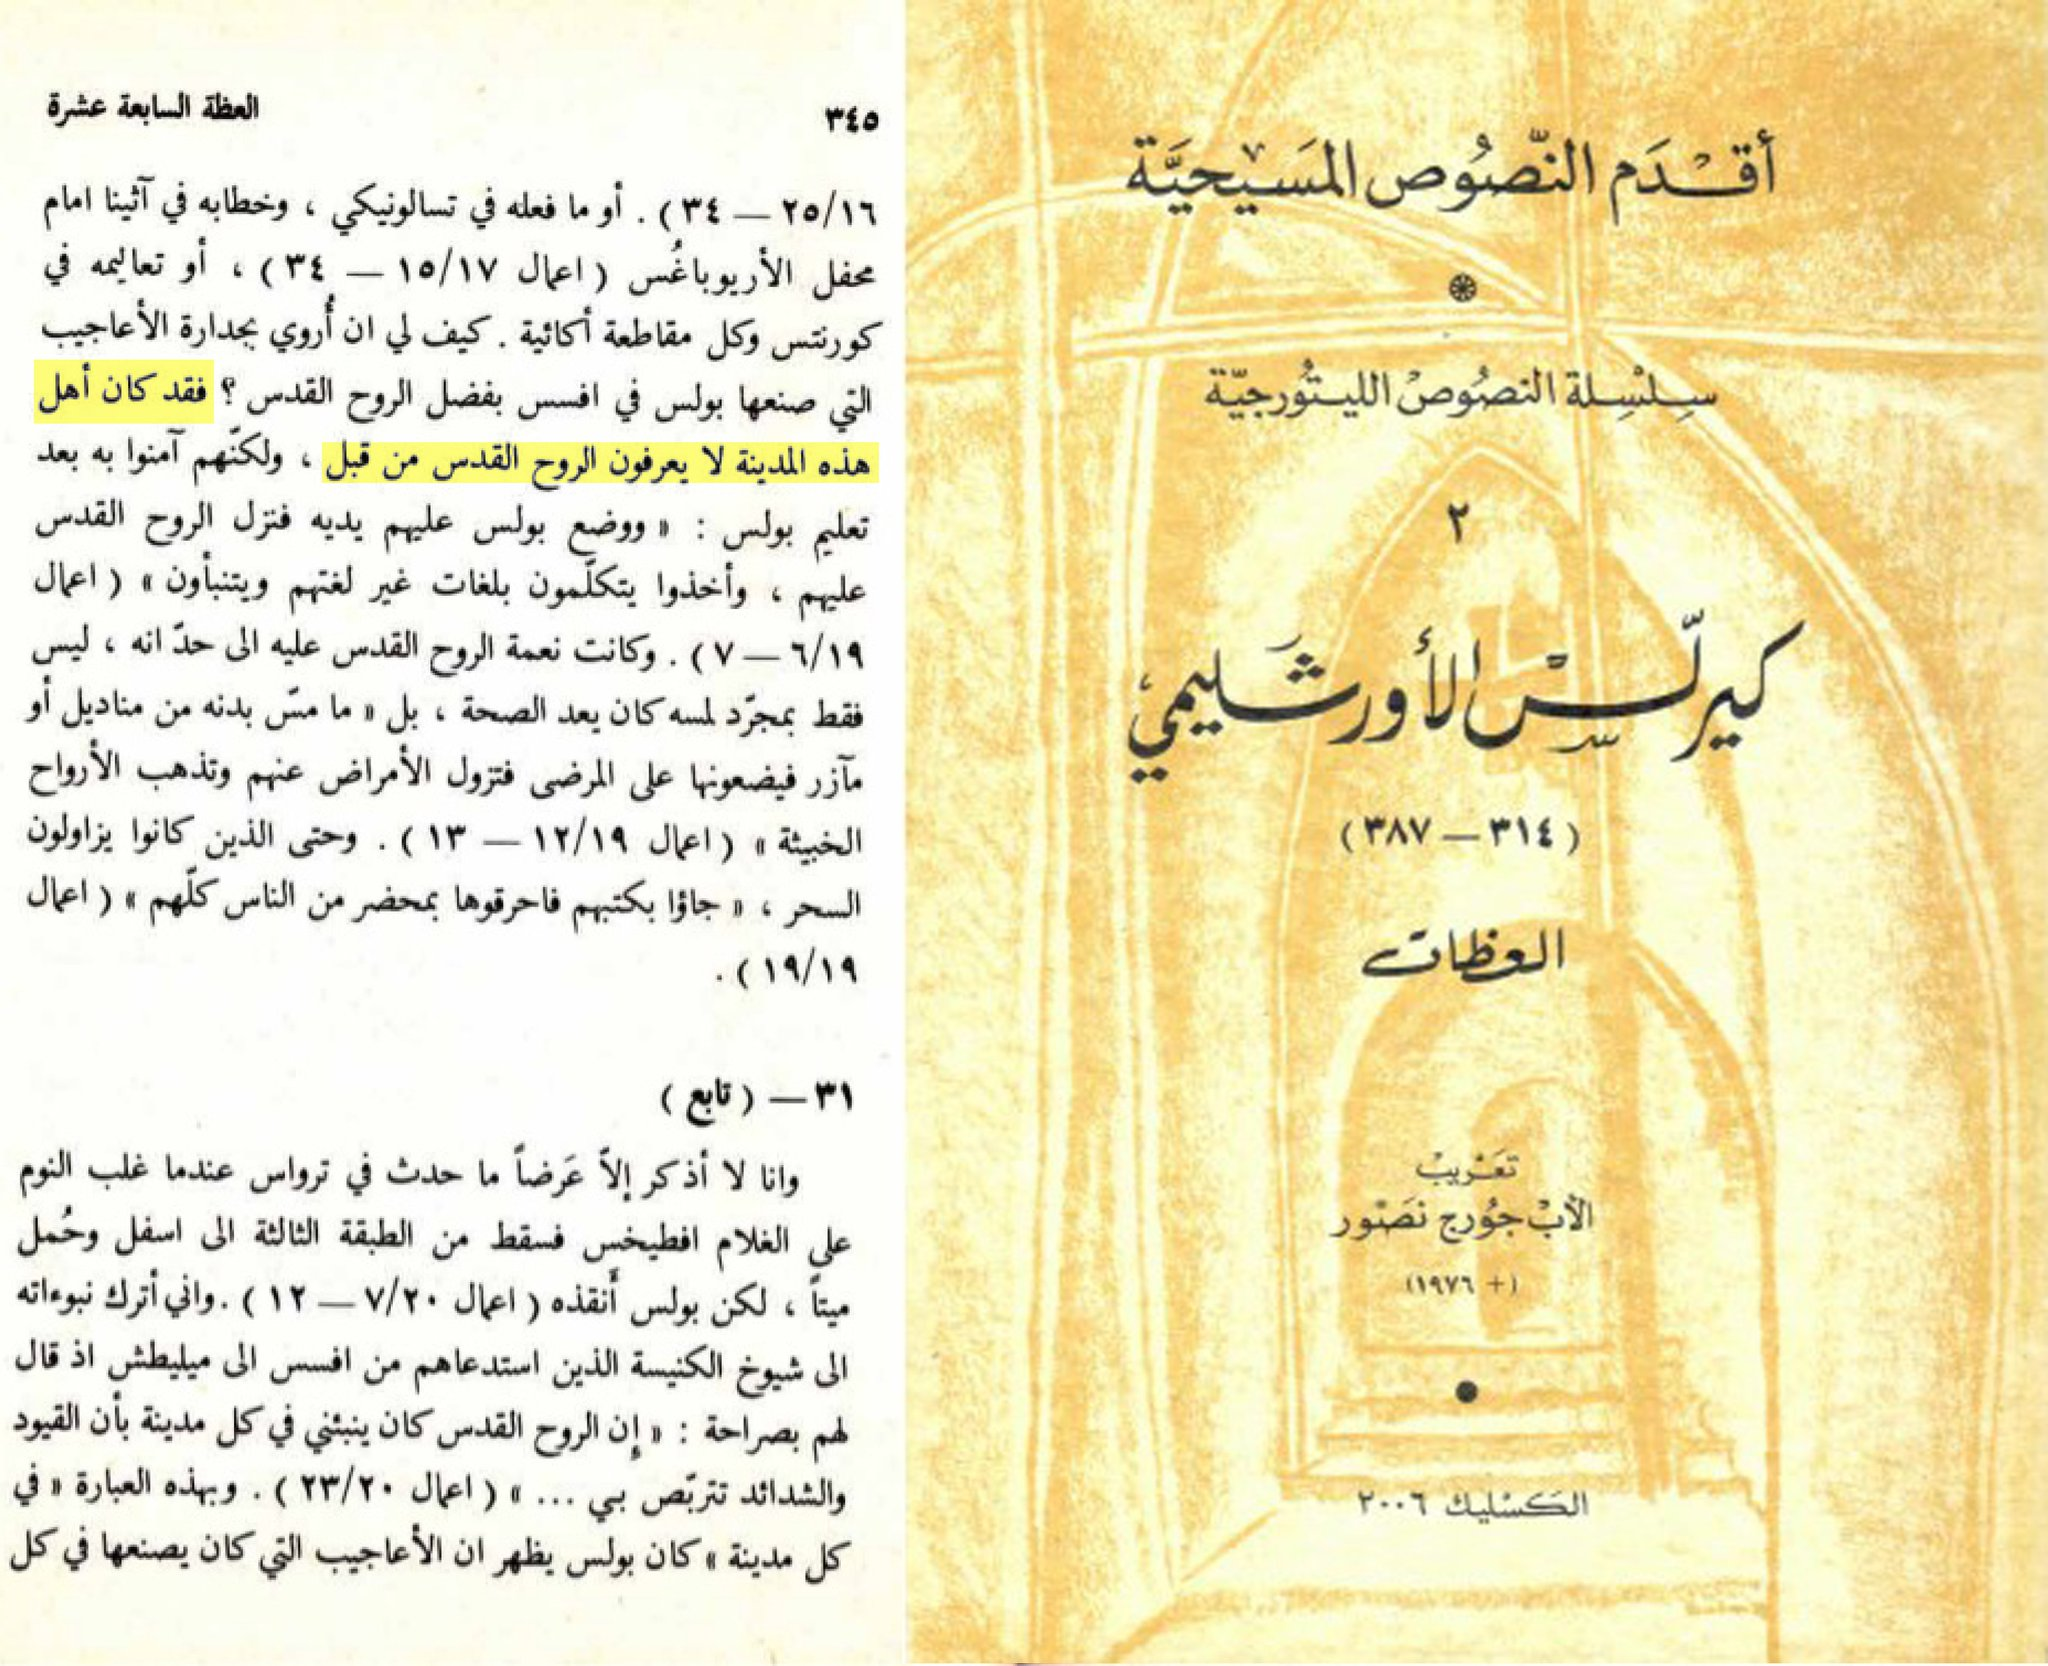 العظة السابعة عشرة
٣٤٥
٢٥/١٦ — ٣٤ ) . أو ما فعله في تسالونيكي ، وخطابه في آثينا امام
محفل الأريوباغُس ( اعمال ١٥/١٧ — ٣٤ ) ، أو تعاليمه في
كورنتس وكل مقاطعة أكائية . كيف لي ان أُروي بجدارة الأعاجيب
التي صنعها بولس في افسس بفضل الروح القدس ؟ فقد كان أهل
هذه المدينة لا يعرفون الروح القدس من قبل ، ولكنّهم آمنوا به بعد
تعليم بولس : « ووضع بولس عليهم يديه فنزل الروح القدس
عليهم ، وأخذوا يتكلّمون بلغات غير لغتهم ويتنبأون » ( اعمال
٦/١٩ — ٧ ) . وكانت نعمة الروح القدس عليه الى حدّ انه ، ليس
فقط بمجرّد لمسه كان يعد الصحة ، بل « ما مسّ بدنه من مناديل أو
مآزر فيضعونها على المرضى فتزول الأمراض عنهم وتذهب الأرواح
الخبيثة » ( اعمال ١٢/١٩ — ١٣ ) . وحتى الذين كانوا يزاولون
السحر ، « جاؤا بكتبهم فاحرقوها بمحضر من الناس كلّهم » ( اعمال
١٩/١٩ ) .
٣١ — ( تابع )
وانا لا أذكر إلاّ عَرضاً ما حدث في ترواس عندما غلب النوم
على الغلام افطيخس فسقط من الطبقة الثالثة الى اسفل وحُمل
ميتاً ، لكن بولس أَنقذه ( اعمال ٧/٢٠ — ١٢ ) . واني أترك نبوءاته
الى شيوخ الكنيسة الذين استدعاهم من افسس الى ميليطش اذ قال
لهم بصراحة : « إِن الروح القدس كان ينبئني في كل مدينة بأن القيود
والشدائد تتربّص بي ... » ( اعمال ٢٣/٢٠ ) . وبهذه العبارة « في
كل مدينة » كان بولس يظهر ان الأعاجيب التي كان يصنعها في كل
أقْدَم النّصُوص المَسَيْحيَّة
سِلْسِلة النصُوصْ الليتُورجيّة
٢
كيرلّسْ الأورشَليمي
( ٣١٤ — ٣٨٧ )
العظات
تعَريبْ
الأبْ جوُرج نصَوُر
( + ١٩٧٦ )
الكسْليك ٢٠٠٦